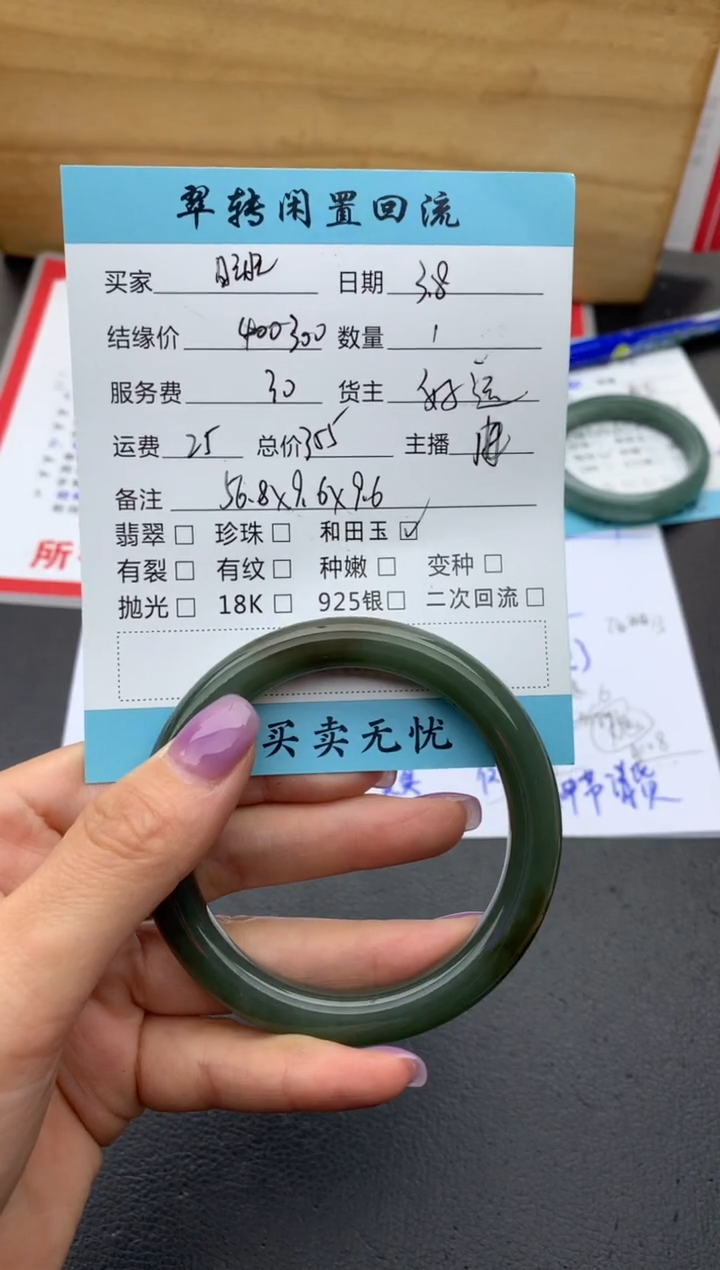 翠转闲置回流
买家 日期 3.8
结缘价 400-300 数量 1
服务费 30 货主 好运
运费 25 总价 355 主播
备注 56.8×9.6×9.6
翡翠□ 珍珠□ 和田玉☑
有裂□ 有纹□ 种嫩□ 变种□
抛光□ 18K□ 925银□ 二次回流□
买卖无忧
所